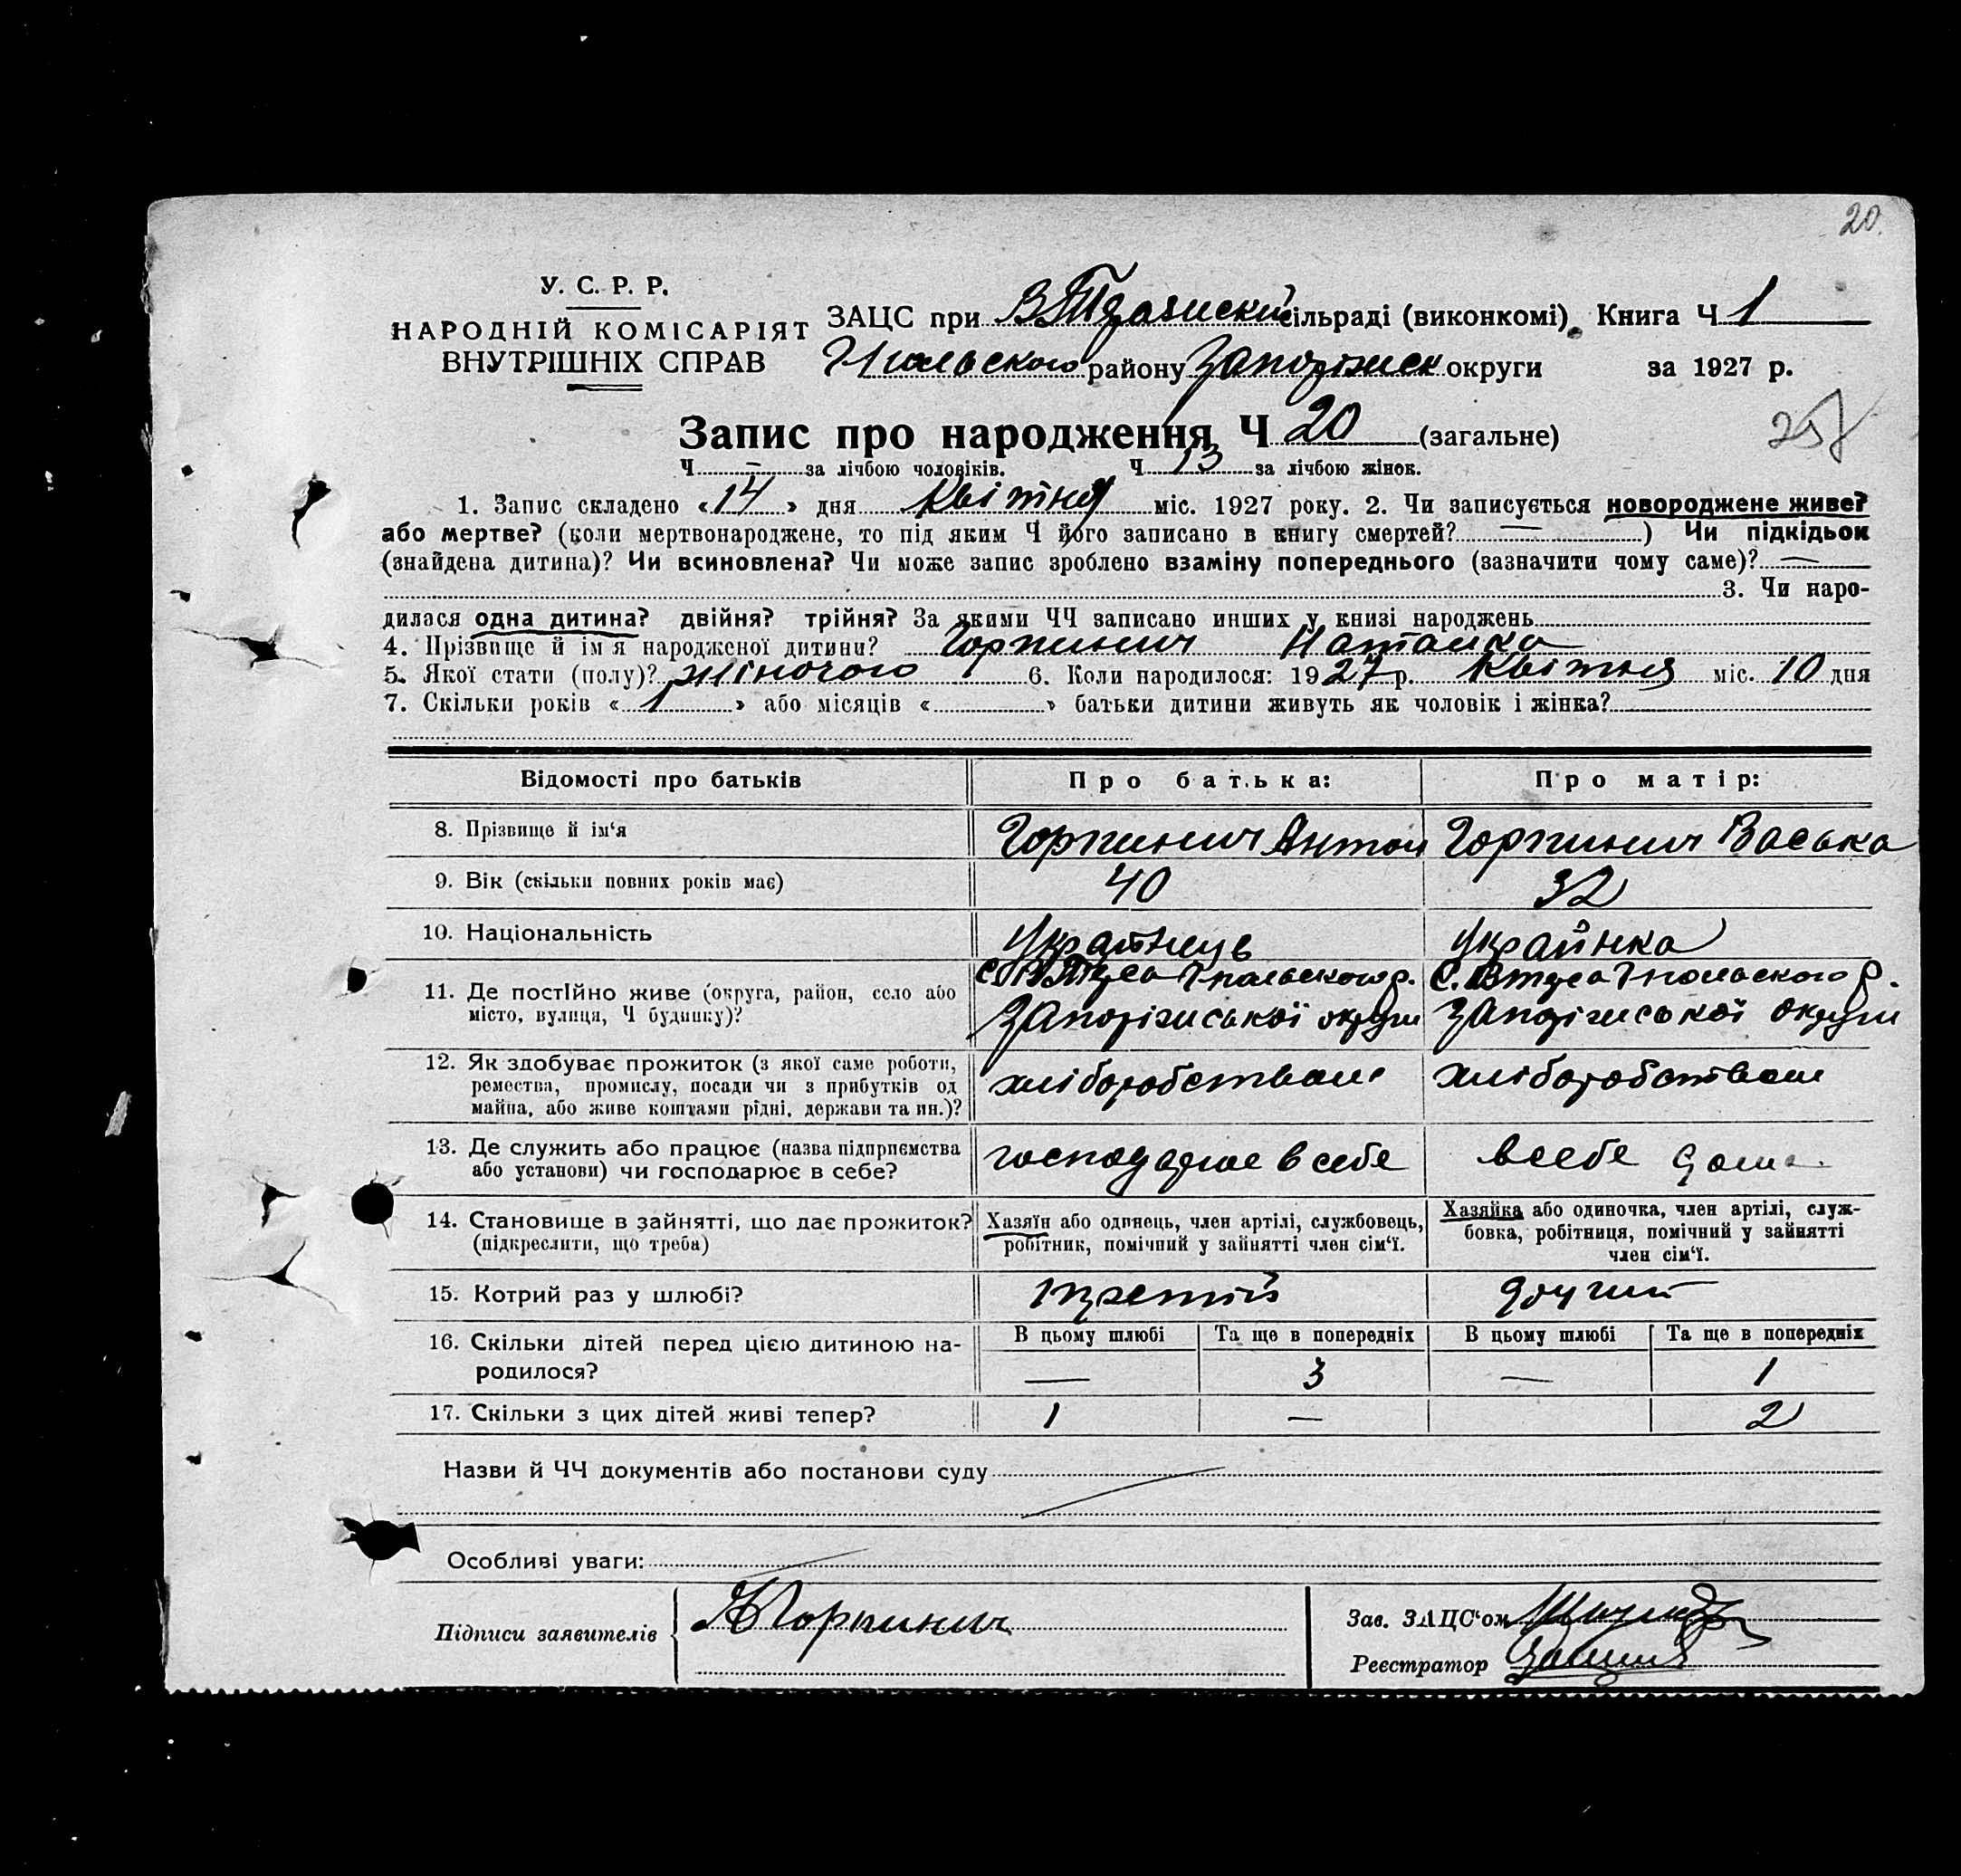 20.
У. С. Р. Р.
НАРОДНІЙ КОМІСАРІЯТ
ВНУТРІШНІХ СПРАВ
ЗАЦС при сільраді (виконкомі) Книга Ч 1
району Запоріжск округи за 1927 р.
Запис про народження Ч 20 (загальне)
Ч — за лічбою чоловіків. Ч 13 за лічбою жінок.
1. Запис складено «14» дня Квітня міс. 1927 року. 2. Чи записується новороджене живе?
або мертве? (коли мертвонароджене, то під яким Ч його записано в книгу смертей? — ) Чи підкідьок
(знайдена дитина)? Чи всиновлена? Чи може запис зроблено взаміну попереднього (зазначити чому саме)? —
3. Чи наро-
дилася одна дитина? двійня? трійня? За якими ЧЧ записано инших у книзі народжень
4. Прізвище й ім'я народженої дитини? Горпинич Наталка
5. Якої стати (полу)? жіночого 6. Коли народилося: 1927 р. Квітня міс. 10 дня
7. Скільки років «1» або місяців « » батьки дитини живуть як чоловік і жінка?
Відомості про батьків Про батька: Про матір:
8. Прізвище й ім'я Горпинич Антон Горпинич Васька
9. Вік (скільки повних років має) 40 32
10. Національність Українець Українка
11. Де постійно живе (округа, район, село або
місто, вулиця, Ч будинку)? Запоріжської округи Запоріжської округи
12. Як здобуває прожиток (з якої саме роботи,
ремества, промислу, посади чи з прибутків од
майна, або живе коштами рідні, держави та ин.)? хліборобством хліборобством
13. Де служить або працює (назва підприємства
або установи) чи господарює в себе? господарює в себе в себе дома
14. Становище в зайнятті, що дає прожиток?
(підкреслити, що треба)
Хазяїн або одинець, член артілі, службовець,
робітник, помічний у зайнятті член сім'ї.
Хазяйка або одиночка, член артілі, служ-
бовка, робітниця, помічний у зайнятті
член сім'ї.
15. Котрий раз у шлюбі? третій другий
16. Скільки дітей перед цією дитиною на-
родилося?
В цьому шлюбі Та ще в попередніх В цьому шлюбі Та ще в попередніх
— 3 — 1
17. Скільки з цих дітей живі тепер? 1 — 2
Назви й ЧЧ документів або постанови суду
Особливі уваги:
Підписи заявителів Горпинич
Зав. ЗАЦС'ом
Реєстратор